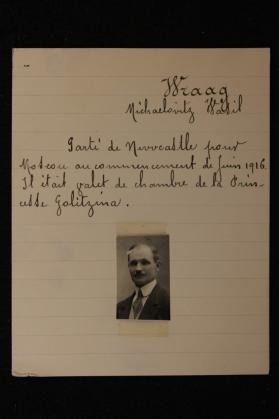 Wraag
Michaelovitz Wasil
Parti de Newcastle pour
Moscou au commencement de Juin 1916.
Il était valet de chambre de la Prin-
cesse Golitzina.